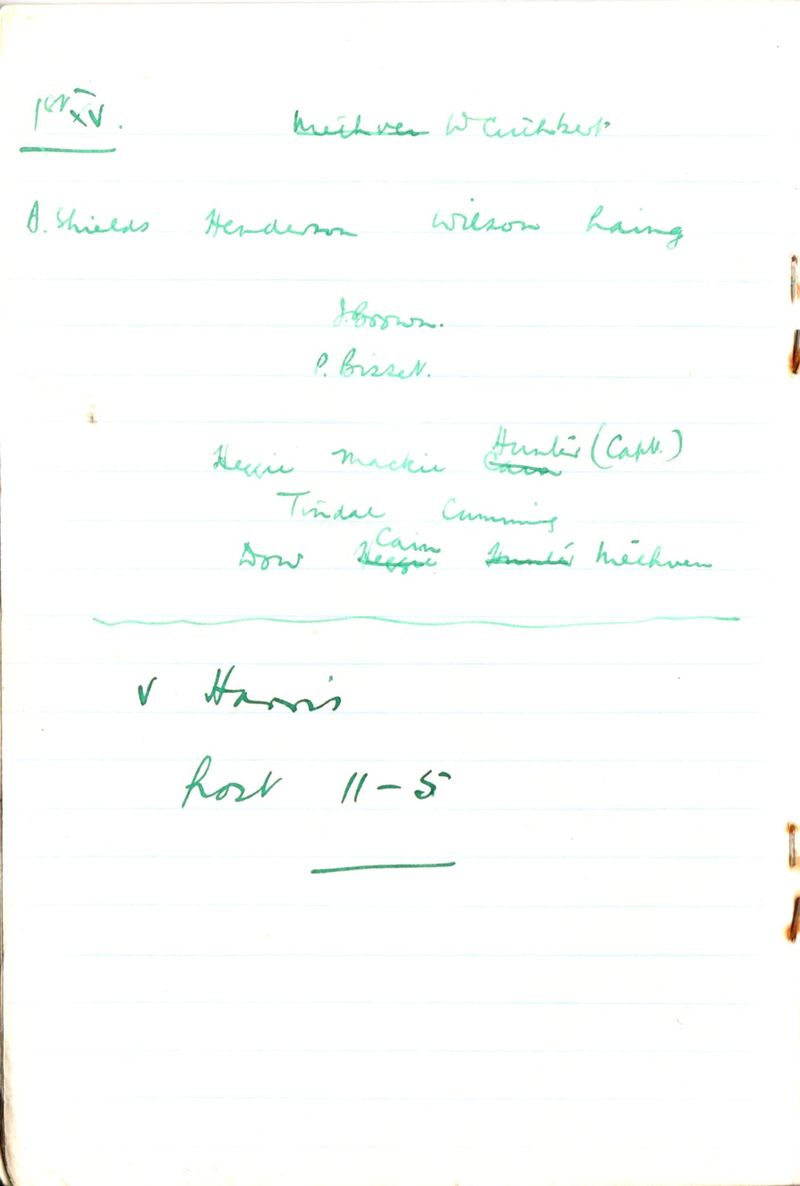 1st XV. Methven W Cuthbert
A. Shields Henderson Wilson Laing
J. Brown.
P. Bisset.
Heggie Mackie Cain Hunter (Capt.)
Tindal Cumming
Dow Heggie Cain Hunter Methven
v Harris
Lost 11-5